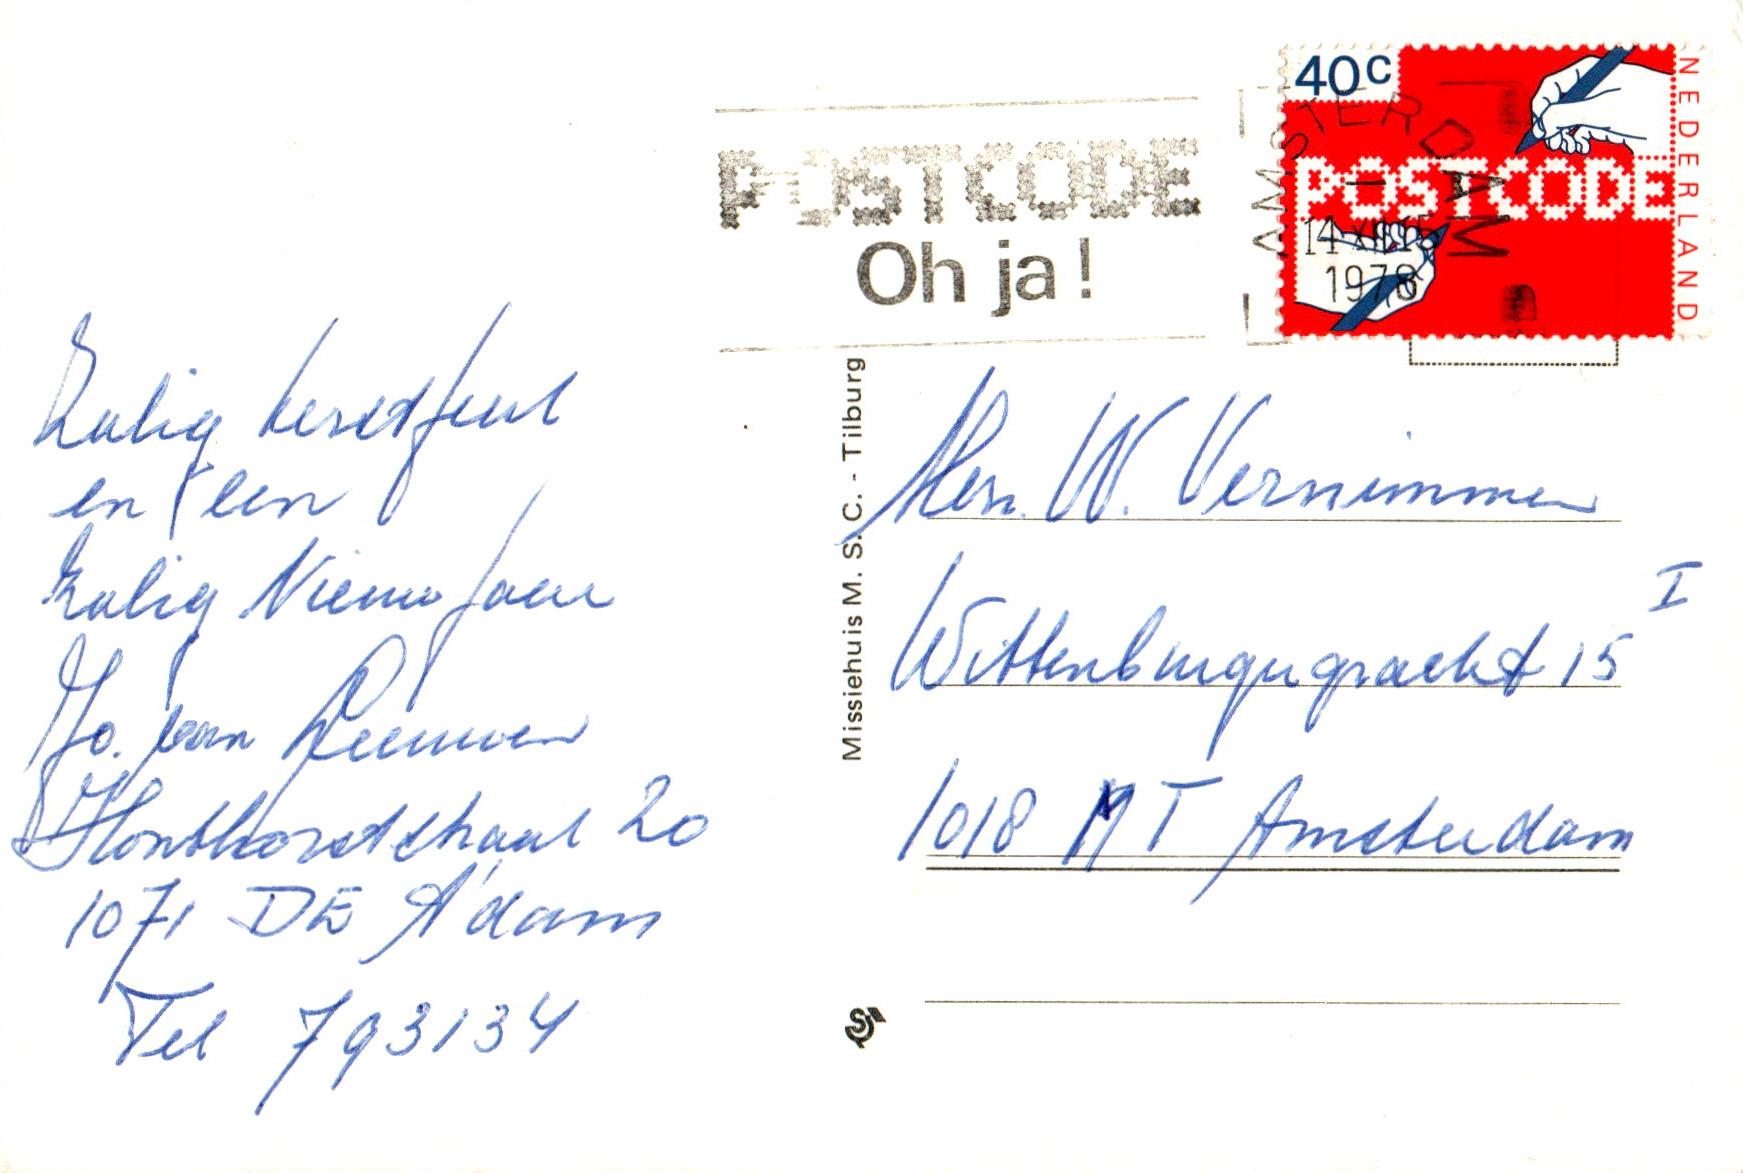 40c
NEDERLAND
POSTCODE
AMSTERDAM
14 XII
1978
POSTCODE
Oh ja!
Zalig kerstfeest
en een
Zalig Nieuw Jaar
Jo. van Leeuwen
Honthorststraat 20
1071 DE A'dam
Tel 793134
Missiehuis M. S. C. - Tilburg
W. Vernimmen
Wittenburgergracht 15 I
1018 MT Amsterdam